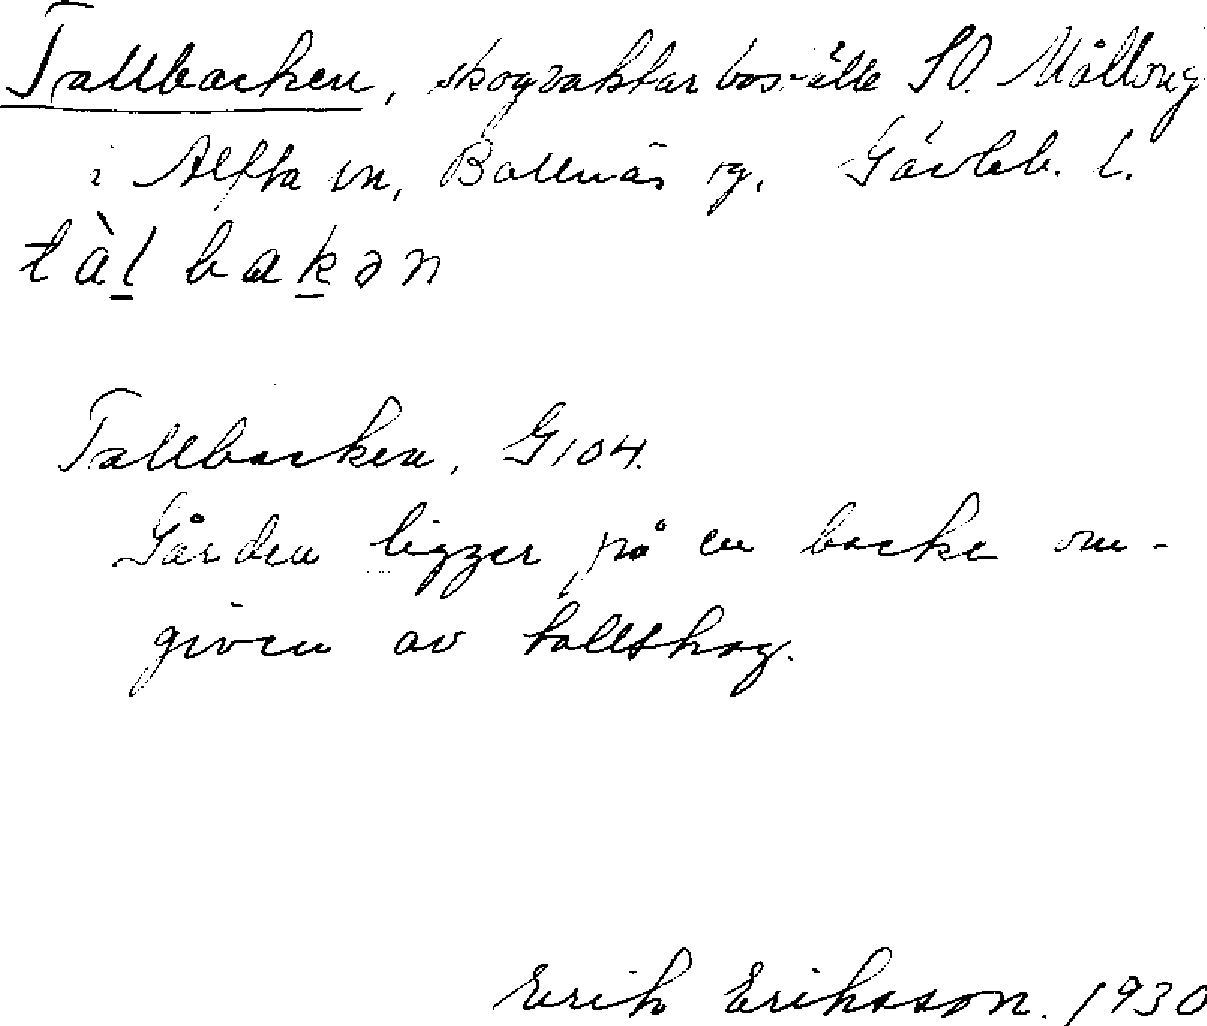 Tallbacken, skogvaktarboställe SO. Mållång
i Alfta sn, Bollnäs sg. Gävleb. l.
tàl bakən
Tallbacken, G104.
Gården ligger på en backe om-
given av tallskog.
Erik Eriksson. 1930